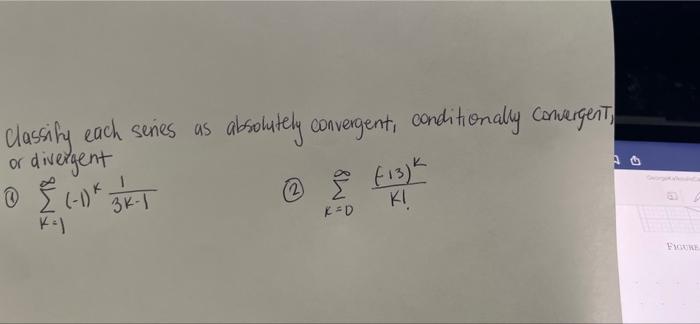 Classify each series as absolutely convergent, conditionally convergent,
or divergent
① ∞ Σ k=1 (-1)^k 1/(3k-1) ② ∞ Σ k=0 (-13)^k/k!
FIGURE